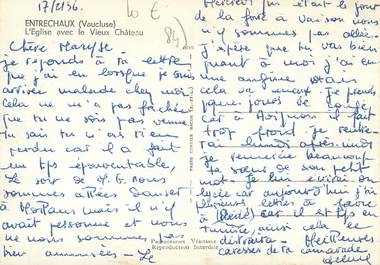 17/2/56.
ENTRECHAUX (Vaucluse)
L'Eglise avec le Vieux Château
10 €
84
Chère Maryse
je réponds à ta lettre
que j'ai eu lorsque je suis
arrivée malade chez moi
cela ne m'a pas fâchée
que tu ne sois pas venue
tu sais tu n'as rien
perdu car il a fait
un tps épouvantable,
Le soir de J.G. nous
sommes allées danser
à Mollans mais il n'y
avait personne et nous
ne nous sommes pas
bien amusées. Le
Mercredi qui était le jour
de la foire à Vaison nous
n'y sommes pas allées.
j'espère que tu vas bien
quant à moi j'ai eu
une angine mais
cela va mieux. Je prends
jours de congé
car à Avignon il fait
trop froid je rentre-
rai lundi après midi
je remercie beaucoup
ta sœur de son petit
mot. Je lui écrirai au
lycée car aujourd'hui j'ai
plusieurs lettres à faire
à (René) car il est tps en
Tunisie, ainsi cela le
distraira. Meilleures
caresses de ta camarade
Photogravure VÉRITABLE
Reproduction Interdite